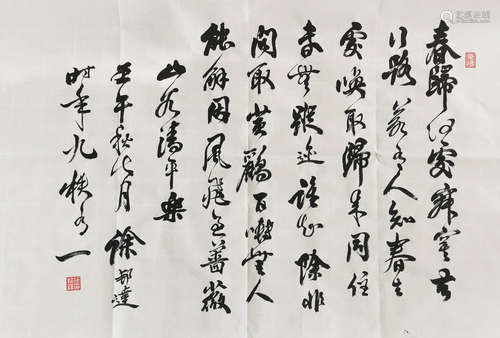 春歸何處寂寞无
行路若有人知春去
處喚取歸來同住
春無蹤迹誰知除非
問取黃鸝百囀無人
能解因風飛過薔薇
山谷清平樂
壬午秋八月 徐邦達
時年九秩又一